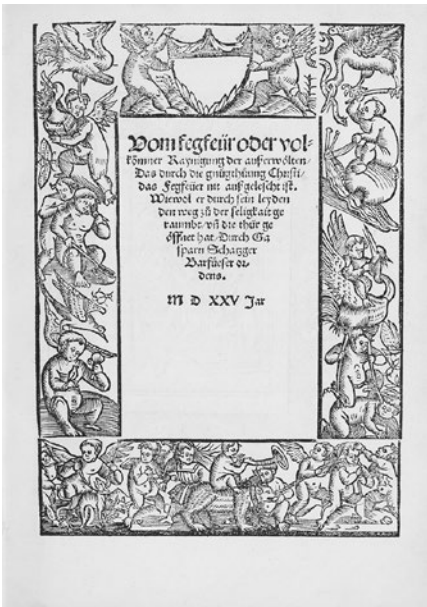 Vom fegfeür oder vol-
kom̃ner Raynigung der außerwölten/
Das durch die gnůgthůung Christi/
das Fegfeüer nit außgelescht ist.
Wiewol er durch sein leyden
den weg zů der seligkait ge
raumbt/ vñ die thür ge
öffnet hat/ Durch Ga
sparn Schatzger
Barfüeser or-
dens.
M D XXV Jar